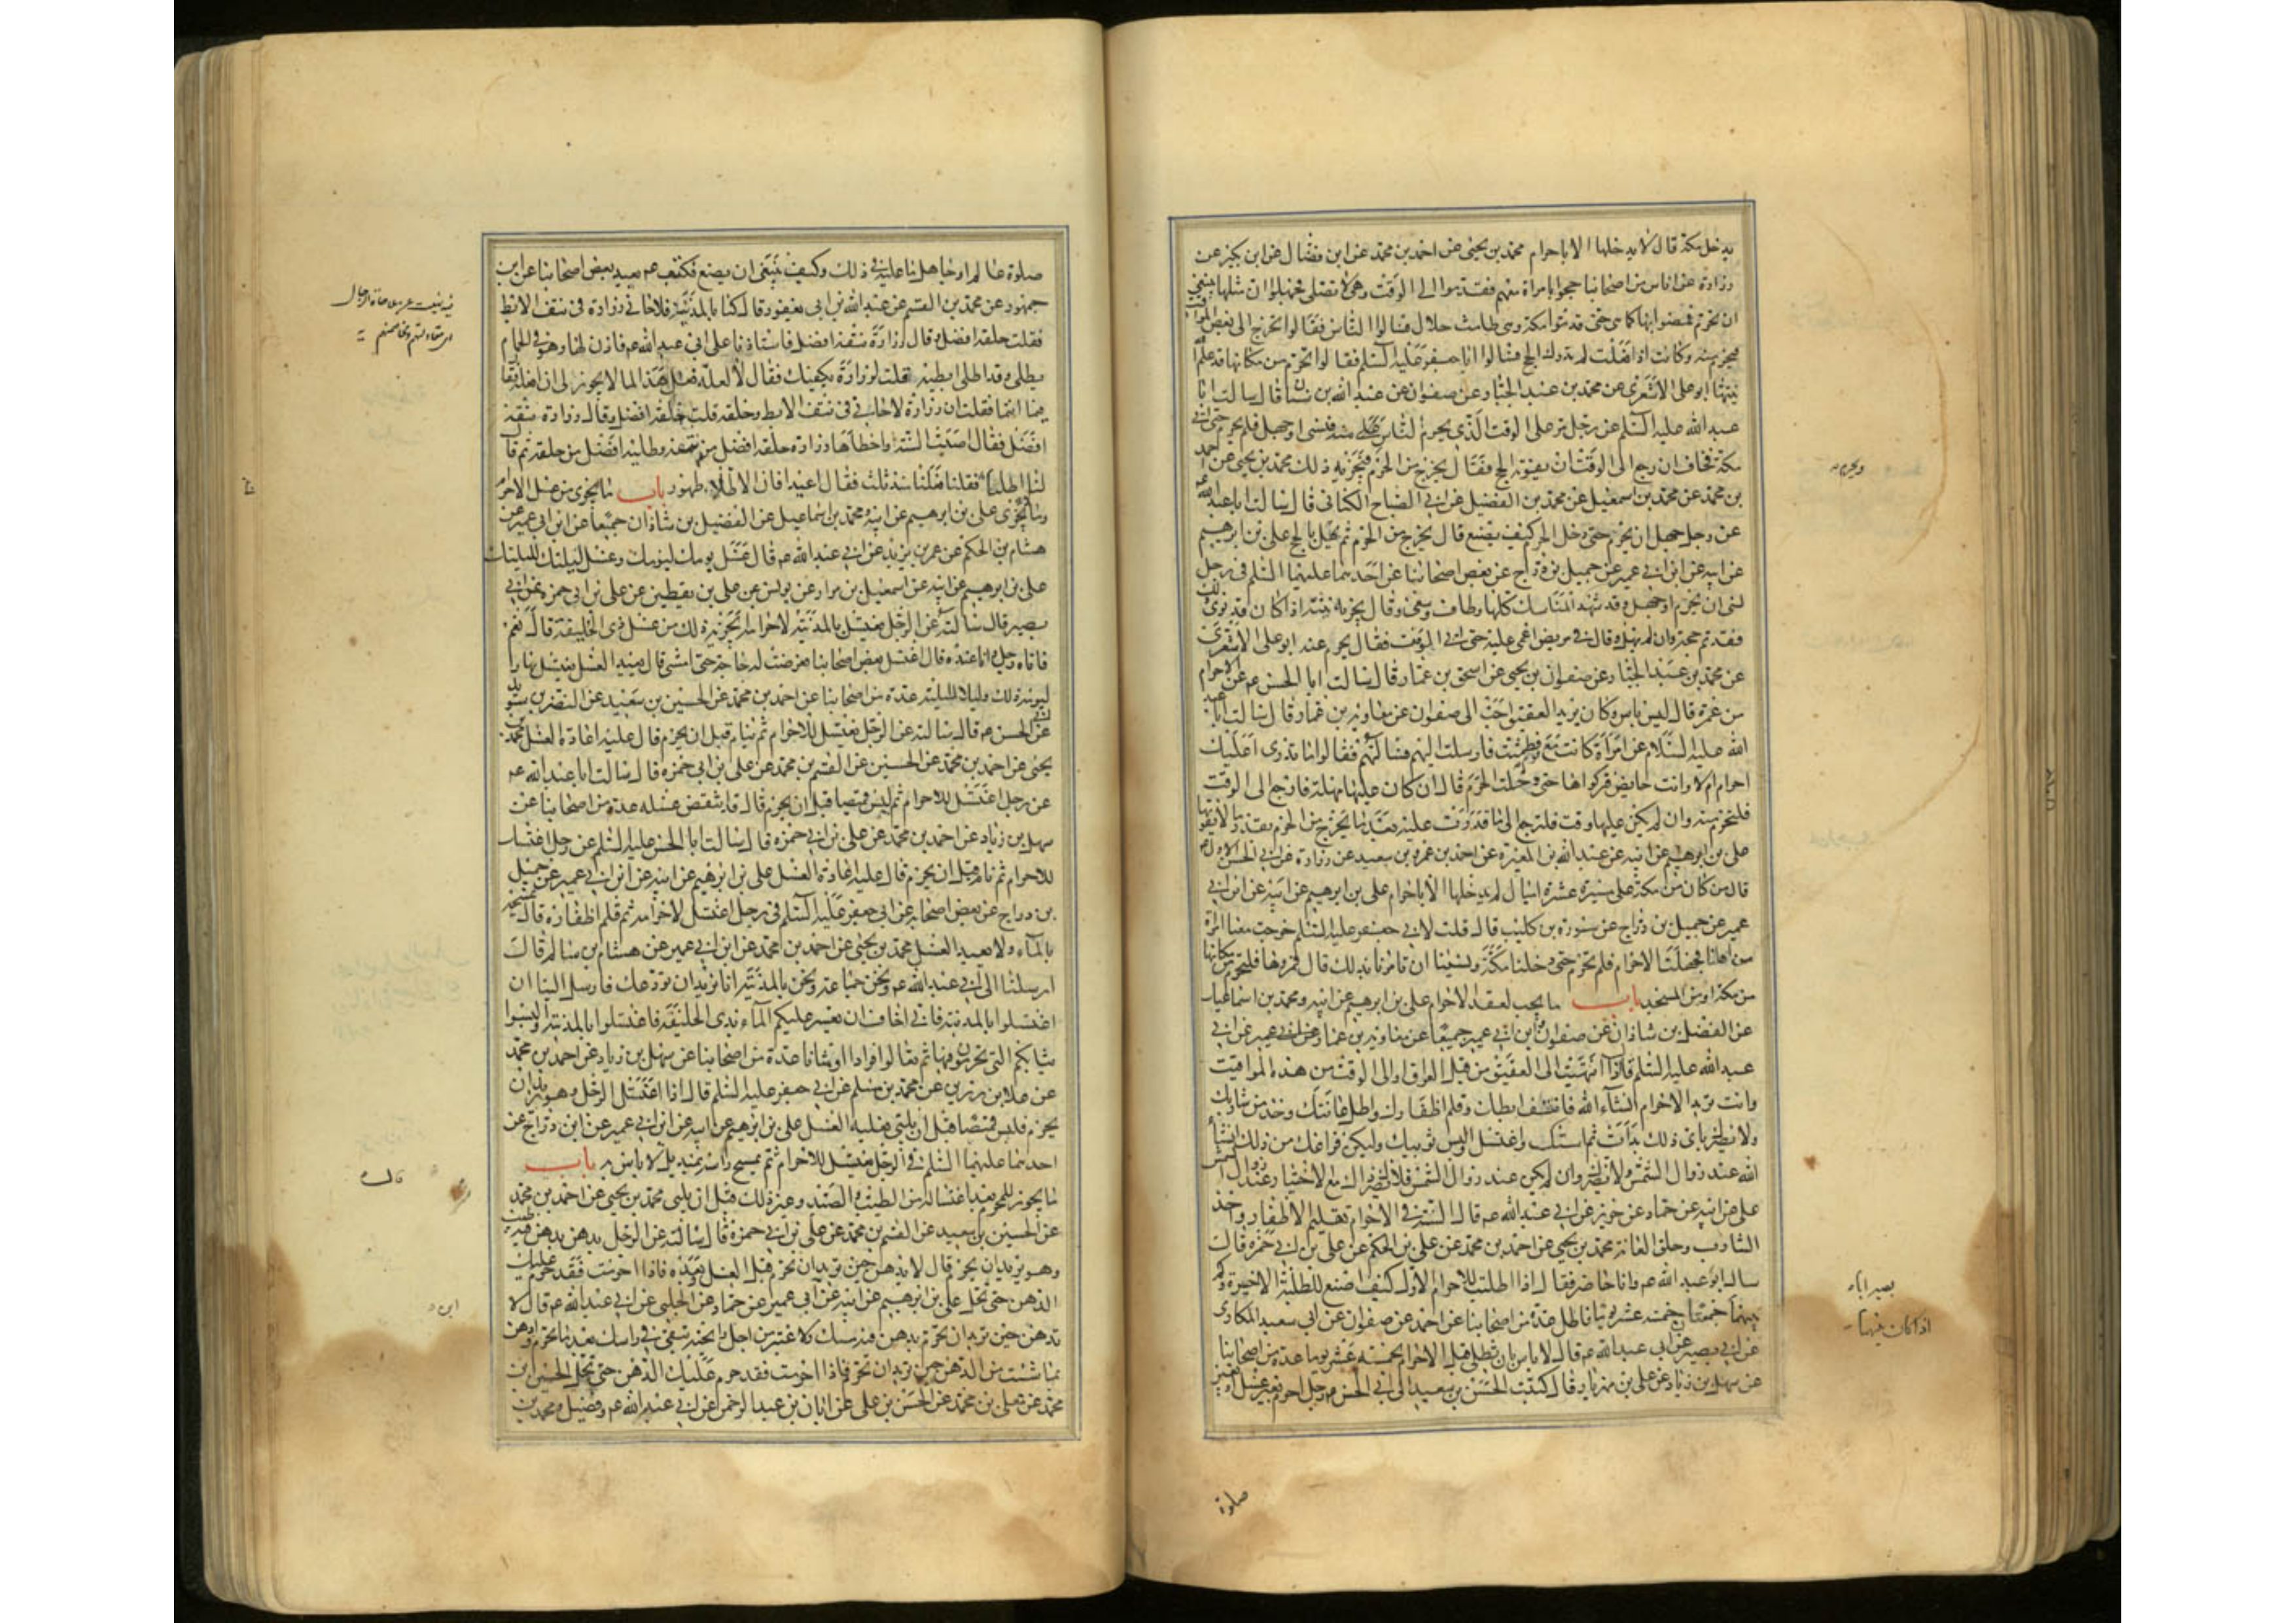 يدخل مكة قال لا يدخلها الا باحرام محمد بن يحيى عن احمد بن محمد عن ابن فضال عن ابن بكير عن
زرارة عن اناس من اصحابنا حجوا بامراة معهم فقدموا الى الوقت وهي لا تصلي فجهلوا ان مثلها ينبغي
ان تحرم فمضوا بها كما هي حتى قدموا مكة وهي طامث حلال فسالوا الناس فقالوا تخرج الى بعض المواقيت
فتحرم منه وكانت اذا فعلت لم تدرك الحج فسالوا ابا جعفر عليه السلم فقالوا تحرم من مكانها قد علم الله
نيتها ابو علي الاشعري عن محمد بن عبد الجبار عن صفوان عن عبد الله بن سنان قال سالت ابا
عبد الله عليه السلم عن رجل مر على الوقت الذي يحرم الناس منه فنسي او جهل فلم يحرم حتى اتى
مكة فخاف ان رجع الى الوقت ان يفوته الحج فقال يخرج من الحرم فيجزيه ذلك محمد بن يحيى عن احمد
بن محمد عن محمد بن اسمعيل عن محمد بن الفضيل عن ابي الصباح الكناني قال سالت ابا عبد الله
عن رجل جهل ان يحرم حتى دخل الحرم كيف يصنع قال يخرج من الحرم ثم يهل بالحج علي بن ابرهيم
عن ابيه عن ابن ابي عمير عن جميل بن دراج عن بعض اصحابنا عن احدهما عليهما السلم في رجل
نسي ان يحرم او جهل وقد شهد المناسك كلها وطاف وسعى وقال يجزيه نيته اذا كان قد نوى ذلك
فقد تم حجه وان لم يهل وقال في مريض اغمي عليه حتى اتى الموقف فقال يحرم عنه ابو علي الاشعري
عن محمد بن عبد الجبار عن صفوان بن يحيى عن اسحق بن عمار قال سالت ابا الحسن عم عن الاحرام
من غمرة قال ليس باس وكان بريد العقيق احب الي صفوان عن معاوية بن عمار قال سالت ابا عبد
الله عليه السلام عن امراة كانت مع قوم فطمثت فارسلت اليهم فسالتهم فقالوا ما ندري اعليك
احرام ام لا وانت حايض فتركوها حتى دخلت الحرم قال ان كان عليها مهلة فلترجع الى الوقت
فلتحرم منه وان لم يكن عليها وقت فلترجع الى ما قدرت عليه بعد ما تخرج من الحرم بقدر ما لا يفوتها
علي بن ابرهيم عن ابيه عن عبد الله بن المغيرة عن احمد بن عمرو بن سعيد عن وردان عن ابي الحسن الاول عم
قال من كان من مكة على مسيرة عشرة اميال لم يدخلها الا باحرام علي بن ابرهيم عن ابيه عن ابن ابي
عمير عن جميل بن دراج عن سورة بن كليب قال قلت لابي جعفر عليه السلم خرجت معنا امراة
من اهلنا فجهلت الاحرام فلم تحرم حتى دخلنا مكة ونسينا ان نامرها بذلك قال فمروها فلتحرم من مكانها
من مكة او من المسجد باب ما يجب لعقد الاحرام علي بن ابرهيم عن ابيه ومحمد بن اسماعيل
عن الفضل بن شاذان عن صفوان وابن ابي عمير جميعا عن معاوية بن عمار عن ابي
عبد الله عليه السلم قال اذا انتهيت الى العقيق من قبل العراق او الى الوقت من هذه المواقيت
وانت تريد الاحرام ان شاء الله فانتف ابطيك وقلم اظفارك واطل عانتك وخذ من شاربك
ولا يضرك باي ذلك بدات ثم استك واغتسل والبس ثوبيك وليكن فراغك من ذلك ان شاء
الله عند زوال الشمس وان لم يكن عند زوال الشمس فلا يضرك مع الاختيار عند زوال الشمس
علي عن ابيه عن حماد عن حريز عن ابي عبد الله عم قال السنة في الاحرام تقليم الاظفار واخذ
الشارب وحلق العانة محمد بن يحيى عن احمد بن محمد عن علي بن الحكم عن علي بن ابي حمزة قال
سال ابو عبد الله عم وانا حاضر فقال اذا اطليت للاحرام الاول كيف اصنع للطلية الاخيرة وكم
بينهما جمعتان خمسة عشر يوما فاطل عدة من اصحابنا عن احمد عن صفوان عن ابي سعيد المكاري
عن ابي بصير عن ابي عبد الله عم قال لا باس بان تطلي قبل الاحرام بخمسة عشر يوما عدة من اصحابنا
عن سهل بن زياد عن علي بن مهزيار قال كتب الحسن بن سعيد الى ابي الحسن عم رجل احرم بغير غسل او بغير
صلوة
صلوة عالم او جاهل ما عليه في ذلك وكيف ينبغي ان يصنع فكتب عم يعيد بعض اصحابنا عن ابن
جمهور عن محمد بن القسم عن عبد الله بن ابي يعفور قال كنا بالمدينة فلاحاني زرارة في نتف الابط
فقلت حلقه افضل وقال زرارة نتفه افضل فاستاذنا على ابي عبد الله عم فاذن لنا وهو في الحمام
يطلي وقد اطلى ابطيه فقلت لزرارة يكفيك فقال لا لعله فعل هذا لما لا يجوز لي ان افعله فقال
فيما انتما فقلت ان زرارة لاحاني في نتف الابط وحلقه قلت حلقه افضل وقال زرارة نتفه
افضل فقال اصبت السنة واخطاها زرارة حلقه افضل من نتفه وطليه افضل من حلقه ثم قال
لنا اطليا فقلنا فعلنا منذ ثلث فقال اعيدا فان الاطلاء طهور باب ما يجزي من غسل الاحرام
وما لا يجزي علي بن ابرهيم عن ابيه ومحمد بن اسماعيل عن الفضل بن شاذان جميعا عن ابن ابي عمير عن
هشام بن الحكم عن عمر بن يزيد عن ابي عبد الله عم قال غسل يومك ليومك وغسل ليلتك لليلتك
علي بن ابرهيم عن ابيه عن اسمعيل بن مرار عن يونس عن علي بن يقطين عن علي بن ابي حمزة عن ابي
بصير قال سالته عن الرجل يغتسل بالمدينة لاحرامه ايجزيه ذلك من غسل ذي الحليفة قال نعم
فاتاه رجل وانا عنده قال اغتسل بعض اصحابنا فعرضت له حاجة حتى امسى قال يعيد الغسل يغتسل نهارا
ليومه ذلك وليلا لليلته عدة من اصحابنا عن احمد بن محمد عن الحسين بن سعيد عن النضر بن سويد
عن ابي الحسن عم قال سالته عن الرجل يغتسل للاحرام ثم ينام قبل ان يحرم قال عليه اعادة الغسل محمد بن
يحيى عن احمد بن محمد عن الحسين عن القسم بن محمد عن علي بن ابي حمزة قال سالت ابا عبد الله عم
عن رجل اغتسل للاحرام ثم لبس قميصا قبل ان يحرم قال قد انتقض غسله عدة من اصحابنا عن
سهل بن زياد عن احمد بن محمد عن علي بن ابي حمزة قال سالت ابا الحسن عليه السلم عن رجل اغتسل
للاحرام ثم نام قبل ان يحرم قال عليه اعادة الغسل علي بن ابرهيم عن ابيه عن ابن ابي عمير عن جميل
بن دراج عن بعض اصحابه عن ابي جعفر عليه السلم في رجل اغتسل لاحرامه ثم قلم اظفاره قال يمسحها
بالماء ولا يعيد الغسل محمد بن يحيى عن احمد بن محمد عن ابن ابي عمير عن هشام بن سالم قال
ارسلنا الى ابي عبد الله عم ونحن جماعة ونحن بالمدينة انا نريد ان نودعك فارسل الينا ان
اغتسلوا بالمدينة فاني اخاف ان يعسر عليكم الماء بذي الحليفة فاغتسلوا بالمدينة والبسوا
ثيابكم التي تحرمون فيها ثم تعالوا فرادا او مثانا عدة من اصحابنا عن سهل بن زياد عن احمد بن محمد
عن علا بن رزين عن محمد بن مسلم عن ابي جعفر عليه السلم قال اذا اغتسل الرجل وهو يريد ان
يحرم فلبس قميصا قبل ان يلبي فعليه الغسل علي بن ابرهيم عن ابيه عن ابن ابي عمير عن ابن دراج عن
احدهما عليهما السلم في الرجل يغتسل للاحرام ثم يمسح راسه بمنديل لا باس به باب
ما يجوز للمحرم بعد اغتساله من الطيب والصيد وغير ذلك قبل ان يلبي محمد بن يحيى عن احمد بن محمد
عن الحسين بن سعيد عن القسم بن محمد عن علي بن ابي حمزة قال سالته عن الرجل يدهن بدهن فيه طيب
وهو يريد ان يحرم قال لا يدهن حين يريد ان يحرم قبل الغسل وبعده فاذا احرمت فقد حرم عليك
الدهن حتى تحل علي بن ابرهيم عن ابيه عن ابي عمير عن حماد عن الحلبي عن ابي عبد الله عم قال لا
تدهن حين تريد ان تحرم بدهن فيه مسك ولا عنبر من اجل رايحته تبقى في راسك بعد ما تحرم وادهن
بما شئت من الدهن حين تريد ان تحرم فاذا احرمت فقد حرم عليك الدهن حتى تحل الحسين بن
محمد عن معلى بن محمد عن الحسن بن علي عن ابان بن عبد الرحمن عن ابي عبد الله عم وفضيل ومحمد بن